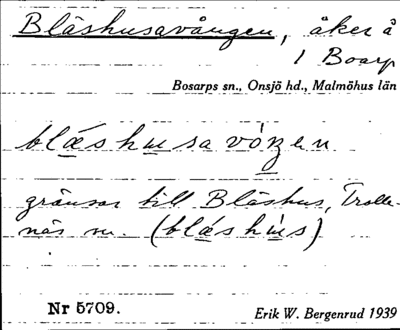 Blåshusavången, åker å
1 Boarp
Bosarps sn., Onsjö hd., Malmöhus län
blǽshusavóŋen
gränsar till Blåshus, Trolle-
näs sn. (blǽshùs)
Nr 5709.
Erik W. Bergenrud 1939